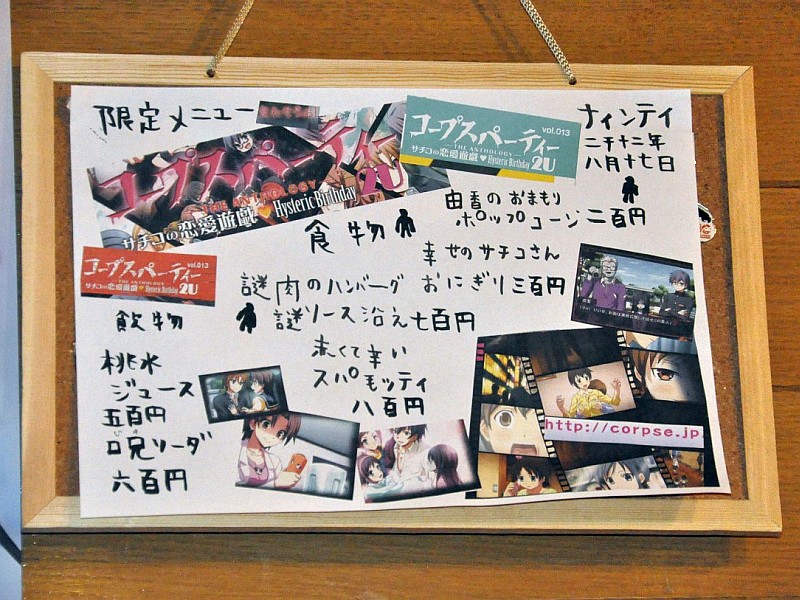 限定メニュー
コープスパーティー
THE ANTHOLOGY
サチコの恋愛遊戯♥Hysteric Birthday
2U
コープスパーティー vol.013
THE ANTHOLOGY
サチコの恋愛遊戯♥Hysteric Birthday 2U
ナインティ
二千十二年
八月十七日
食物
由香のおまもり
ポップコーン二百円
幸せのサチコさん
おにぎり三百円
コープスパーティー vol.013
THE ANTHOLOGY
サチコの恋愛遊戯♥Hysteric Birthday 2U
謎肉のハンバーグ
謎ソース沿え七百円
赤くて辛い
スパモッティ
八百円
飲物
桃水
ジュース
五百円
呪ソーダ
六百円
http://corpse.jp